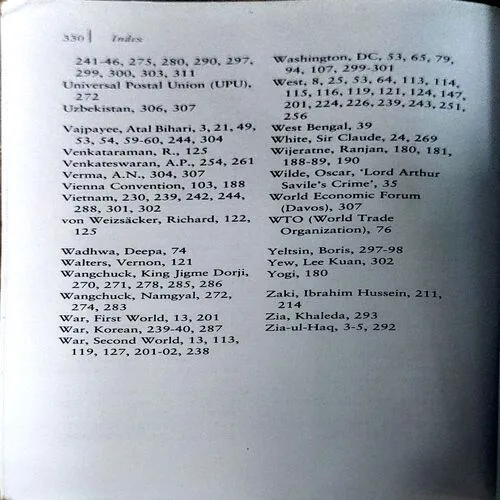 330 | Index
241-46, 275, 280, 290, 297,
299, 300, 303, 311
Universal Postal Union (UPU),
272
Uzbekistan, 306, 307
Vajpayee, Atal Bihari, 3, 21, 49,
53, 54, 59-60, 244, 304
Venkataraman, R., 125
Venkateswaran, A.P., 254, 261
Verma, A.N., 304, 307
Vienna Convention, 103, 188
Vietnam, 230, 239, 242, 244,
288, 301, 302
von Weizsäcker, Richard, 122,
125
Wadhwa, Deepa, 74
Walters, Vernon, 121
Wangchuck, King Jigme Dorji,
270, 271, 278, 285, 286
Wangchuck, Namgyal, 272,
274, 283
War, First World, 13, 201
War, Korean, 239-40, 287
War, Second World, 13, 113,
119, 127, 201-02, 238
Washington, DC, 53, 65, 79,
94, 107, 299-301
West, 8, 25, 53, 64, 113, 114,
115, 116, 119, 121, 124, 147,
201, 224, 226, 239, 243, 251,
256
West Bengal, 39
White, Sir Claude, 24, 269
Wijeratne, Ranjan, 180, 181,
188-89, 190
Wilde, Oscar, ‘Lord Arthur
Savile’s Crime’, 35
World Economic Forum
(Davos), 307
WTO (World Trade
Organization), 76
Yeltsin, Boris, 297-98
Yew, Lee Kuan, 302
Yogi, 180
Zaki, Ibrahim Hussein, 211,
214
Zia, Khaleda, 293
Zia-ul-Haq, 3-5, 292